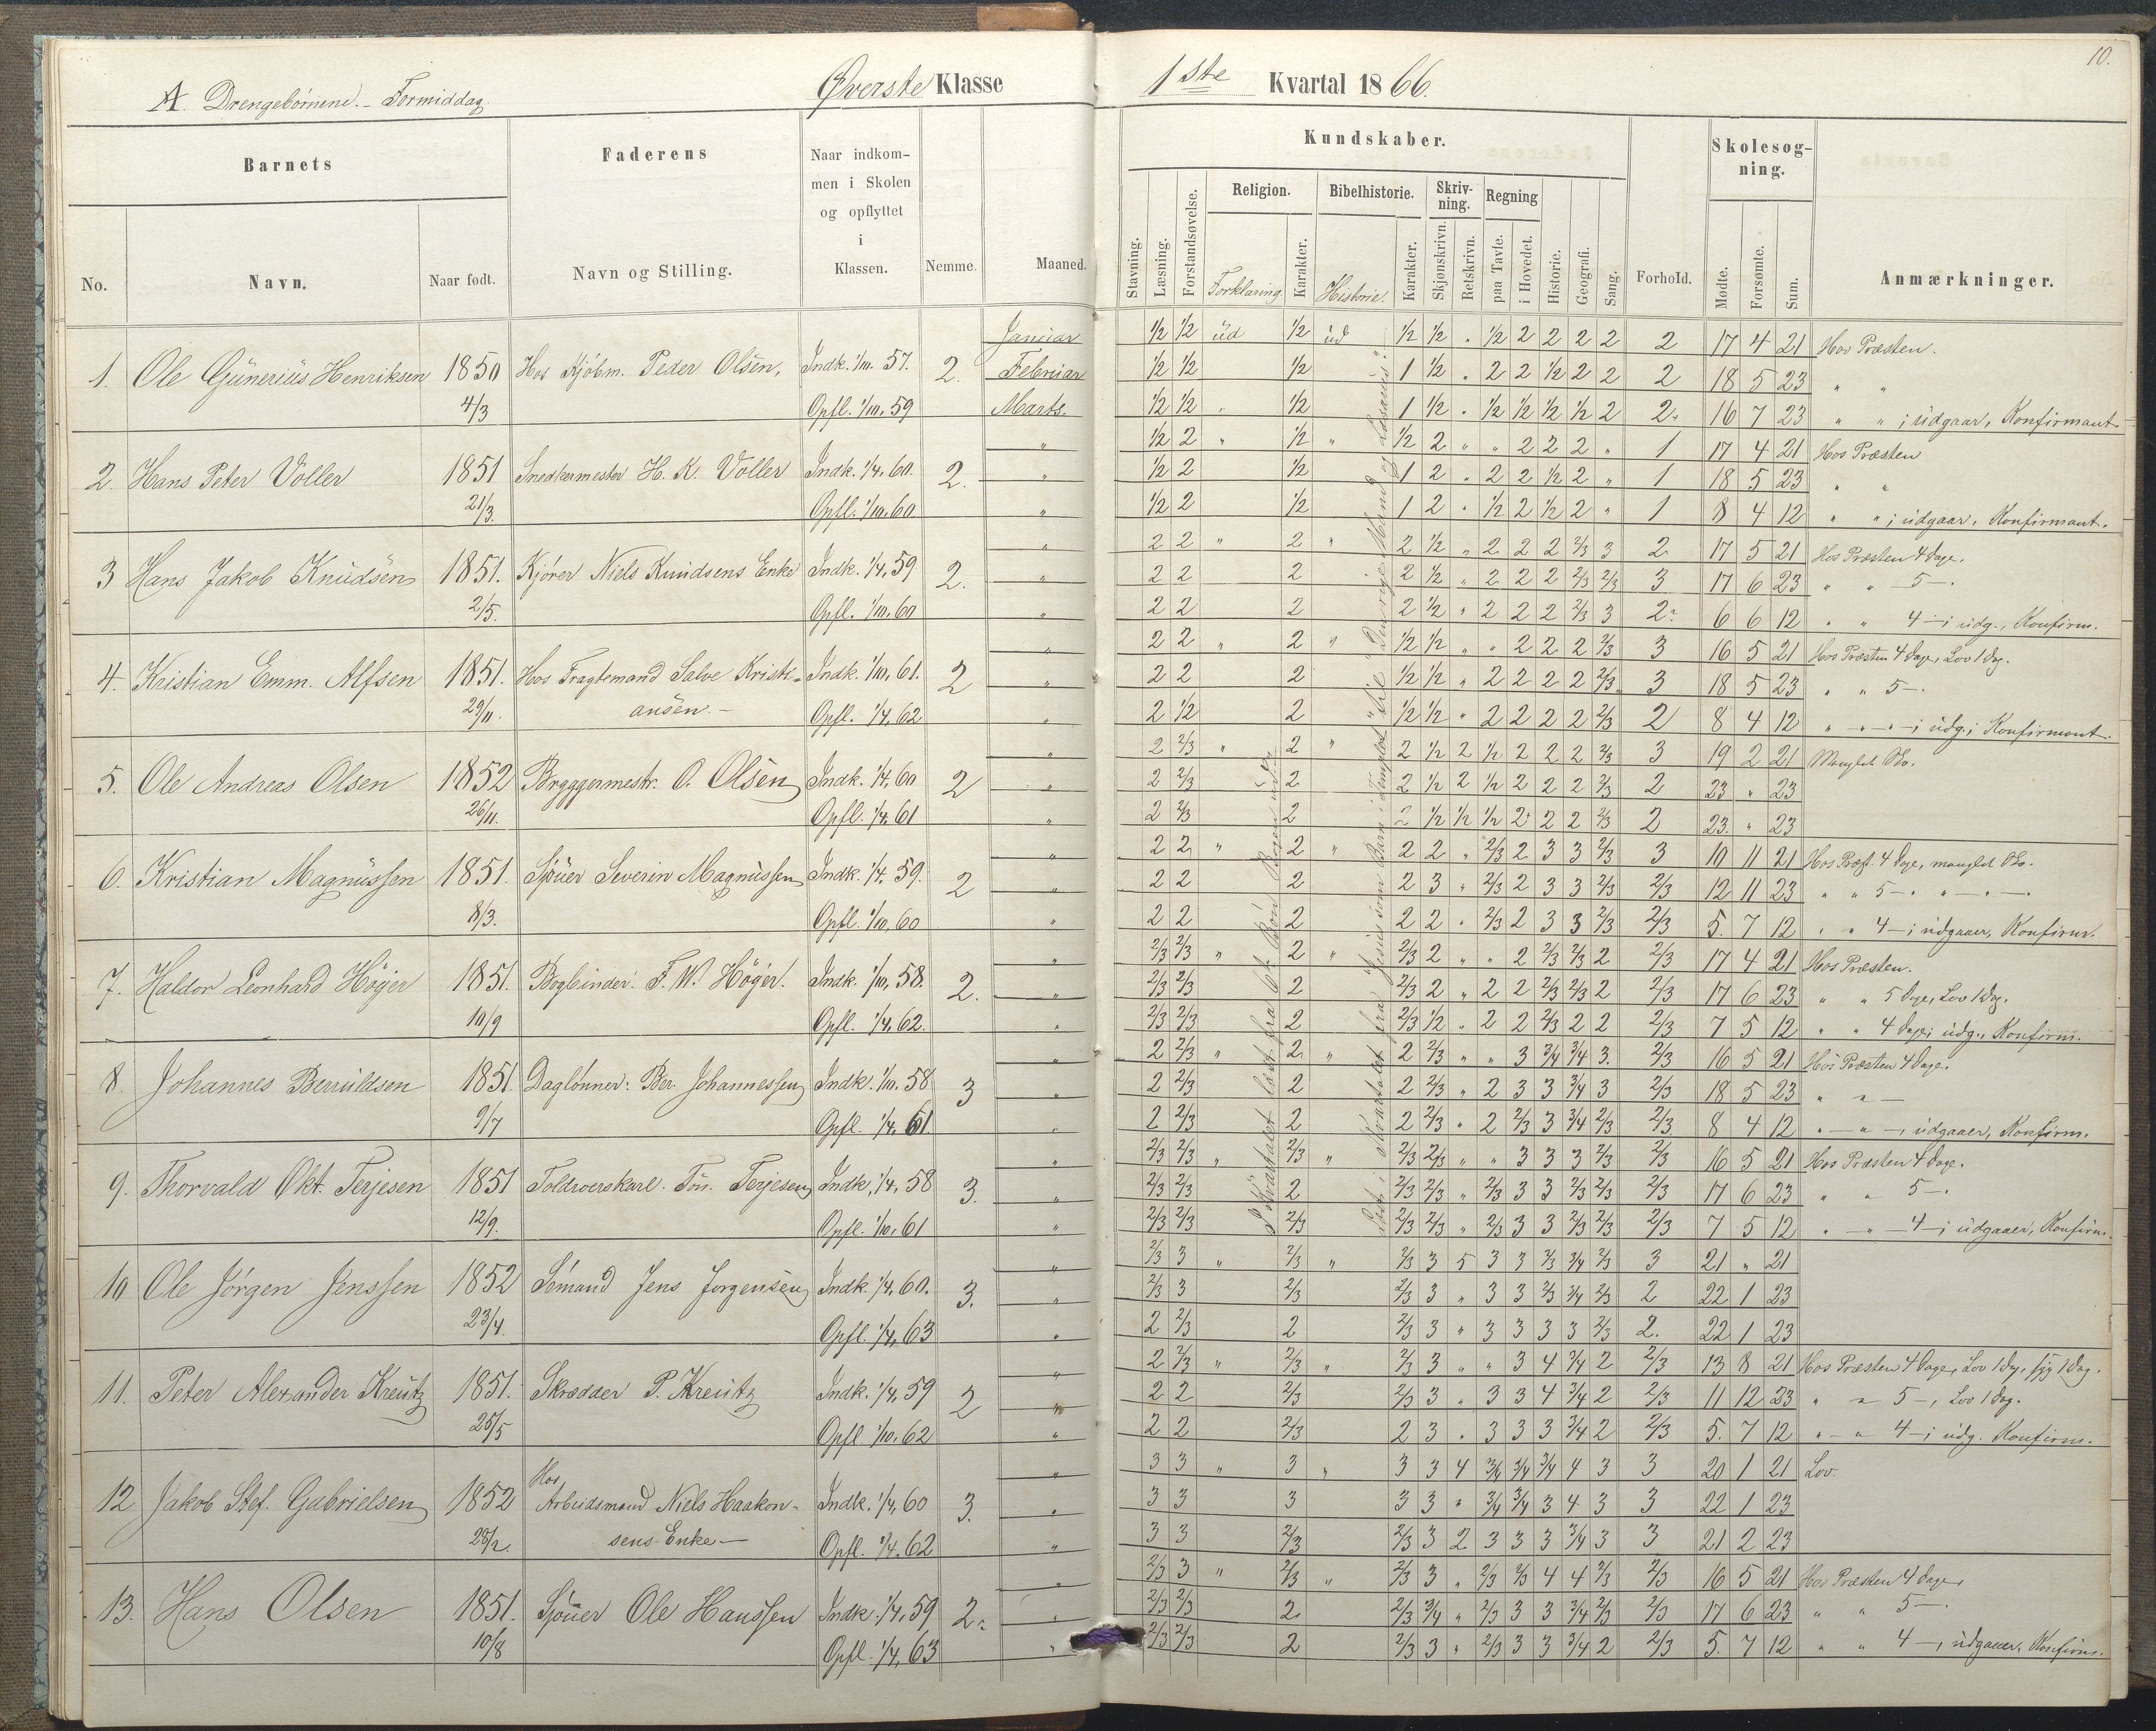 10.
A. Drengebørnene. - Formiddag.
Øverste Klasse
1ste Kvartal 1866.
Barnets
Faderens
Naar indkommen i Skolen og opflyttet i Klassen.
Nemme.
Maaned.
No.
Navn.
Naar født.
Navn og Stilling.
Kundskaber.
Stavning.
Læsning.
Forstandsøvelse.
Religion.
Forklaring.
Karakter.
Bibelhistorie.
Historie.
Karakter.
Skrivning.
Skjønskrivn.
Retskrivn.
Regning
paa Tavle.
i Hovedet.
Historie.
Geografi.
Sang.
Forhold.
Skolesøgning.
Mødte.
Forsømte.
Sum.
Anmærkninger.
1. Ole Gunerius Henriksen 1850 Hos Kjøbm. Peder Olsen, Indk. 1/10. 57. 2. Januar 1/2 1/2 ud 1/2 ud 1/2 1/2 " 1/2 2 2 2 2 2 17 4 21 Hos Præsten.
Februar 1/2 1/2 1/2 1 1/2 " 2 2 1/2 2 2 2 18 5 23 " "
4/3 Opfl. 1/10. 59 Marts. 1/2 1/2 1/2 1 1/2 " 1/2 1/2 1/2 1/2 2 2 16 7 23 " " ; udgaar, Konfirmant.
2. Hans Peter Voller 1851 Snedkermester H. K. Voller Indk. 1/4. 60. 2. " 1/2 2 " 1/2 " 1/2 2 " " 2 2 2 " 1 17 4 21 Hos Præsten
" 1/2 2 1/2 1 2 " 2 2 1/2 2 " 1 18 5 23 " "
21/3. Opfl. 1/10. 60. " 1/2 2 1/2 1 2 " 1/2 2 1/2 2 " 1 8 4 12 " " ; udgaar, Konfirmant.
3 Hans Jakob Knudsen 1851. Niels Knudsens Enke Indk. 1/4. 59 2. " 2 2 " 2 " 2 1/2 " 2 2 2 2/3 3 2 17 5 21 Hos Præsten 4 Dage.
" 2 2 2 2 1/2 " 2 2 2 2/3 2/3 3 17 6 23 " " 5 -.
2/5. Opfl. 1/10. 60 " 2 2 2 2 1/2 " 2 2 2 2/3 3 2 6 6 12 " " 4 - ; udg., Konfirm.
4. Kristian Emm. Alfsen 1851. Hos Fragtemand Salve Kristi- Indk. 1/10. 61. 2 " 2 2 " 2 " 1/2 1/2 " " 2 2 2 2/3 3 16 5 21 Hos Præsten 4 Dage, Lov 1 Dag.
" 2 2 2 1/2 1/2 " 2 2 2 2 2/3 3 18 5 23 " " 5 -.
29/11. ansen. - Opfl. 1/4. 62 " 2 1/2 2 1/2 1/2 " 2 2 2 2 2/3 2 8 4 12 " " " - ; udg.; Konfirmant.
5. Ole Andreas Olsen 1852 Bryggermestr. O. Olsen Indk. 1/4. 60 2 " 2 2/3 " 2 " 2 1/2 2 1/2 2 2 2 2/3 3 19 2 21
" 2 2/3 2 2 1/2 2 1/2 2 2 2 2/3 2 23 " 23
26/11. Opfl. 1/4. 61 " 2 2/3 2 2 1/2 1/2 1/2 2 2 2 2/3 2 23. " 23
6. Kristian Magnussen 1851. Sjouer Severin Magnussen Indk. 1/4. 59. 2 " 2 2 " 2 " 2 2 " 2/3 2 3 3 2/3 3 10 11 21 Hos Præst. 4 Dage,
" 2 2 2 2 3 " 2/3 2 3 3 2/3 2/3 12 11 23 " " 5 - " " - " -.
8/3. Opfl. 1/10. 60 " 2 2 2 2 2 " 2/3 2 3 3 2/3 2/3 5. 7 12 " " 4 - ; udgaaer, Konfirm.
7. Haldor Leonhard Höyer 1851. Bogbinder F. W. Höyer. Indk. 1/10. 58. 2. " 2/3 2/3 " 2 " 2/3 2 " " 2 2/3 2/3 2 2/3 17 4 21 Hos Præsten.
" 2/3 2/3 2 2/3 2 " 2 2 2/3 2/3 2 2/3 17 6 23 " " 5 Dage, Lov 1 Dag.
10/9 Opfl. 1/4. 62. " 2/3 2/3 2 2/3 1/2 " 2 2 2/3 2 2 2/3 7 5 12 " " 4 Dage; udg., Konfirm.
8. Johannes Berruldsen 1851. Daglønner: Ber. Johannessen Indk. 1/10. 58 3 " 2 2/3 " 2 " 2 2/3 " " 3 3/4 3/4 3. 2/3 16 5 21 Hos Præsten 4 Dage.
" 2 2/3 2 2 2/3 " 2 3 3 3/4 3 2/3 18 5 23 " " -
9/7 Opfl. 1/4. 61. " 2 2/3 2 2 2/3 " 2 2/3 3 3/4 2/3 2/3 8 4 12 " - " - ; udgaaer, Konfirm.
9. Thorvald Okt. Terjesen 1851 Toldroerskarl. Tön. Terjesen Indk. 1/4. 58 3. " 2/3 2/3 " 2/3 " 2/3 2/3 " " 3 3 3 2/3 2/3 16 5 21 Hos Præsten 4 Dage.
" 2/3 2/3 2 2/3 2/3 " 2/3 3 3 2/3 2/3 2/3 17 6 23 " " 5 -.
12/9. Opfl. 1/10. 61 " 2/3 2/3 2/3 2/3 2/3 " 2/3 3 3 2/3 2/3 2/3 7 5 12 " - " - 4 - ; udgaaer, Konfirm.
10 Ole Jørgen Jenssen 1852 Sömand Jens Jorgensen Indk. 1/4. 60. 3. " 2/3 3 " 2/3 " 2/3 3 5 3 3 2/3 3/4 2/3 3 21 " 21
" 2/3 3 2/3 2/3 3 " 3 3 2/3 3/4 2/3 2 22 1 23
23/4. Opfl. 1/4. 63 " 2 2/3 2 2/3 3 " 3 3 3 3 2/3 2. 22 1 23
11. Peter Alexander Kreutz 1851. Skrædder P. Kreutz Indk. 1/4. 59 2 " 2 2/3 " 2/3 " 2/3 3 " " 3 4 3/4 2 2/3 13 8 21 Hos Præsten 4 Dage, Lov 1 Dag, syg 1 Dag.
" 2 2 2/3 2/3 3 " 3 3 4 3/4 2 2/3 11 12 23 " " 5 -, Lov 1 Dag.
25/5 Opfl. 1/10. 62 " 2 2 2/3 2 3 " 3 3 3 3/4 2 2/3 5. 7 12 " - " 4 - ; udg. Konfirm.
12 Jakob Stef. Gabrielsen 1852 Hos Arbeidsmand Niels Haakon- Indk. 1/4. 60 3. " 3 3 " 3 " 3 3 4 3/4 3/4 3/4 4 3 3 20 1 21 Lov.
" 3 3 3 3 3 " 3/4 3/4 3 4 3 3 22 1 23
28/2. sens Enke - Opfl. 1/4. 62 " 3 3 2/3 2/3 3 2 3 3 3 3/4 3 3 21 2 23
13. Hans Olsen 1851. Sjouer Ole Hanssen Indk. 1/4. 59 2. " 2/3 3 " 2/3 " 2/3 3 " 2/3 2/3 4 4 2/3 2/3 16 5 21 Hos Præsten 4 Dage,
" 2/3 2/3 2 2/3 3/4 " 2/3 3 3 3/4 2/3 2/3 17 6 23 " " 5 -.
10/8 Opfl. 1/4. 63 " 2/3 2/3 2 2/3 3 " 2/3 3 3 3/4 2 2/3 5. 7 12 " " 4 - ; udgaaer, Konfirm.
I Kvartalet læst fra 6te Bön Bogen ud.
Læst i Kvartalet fra Jesus som Barn i Templet til Den rige Mand & Lazarus.